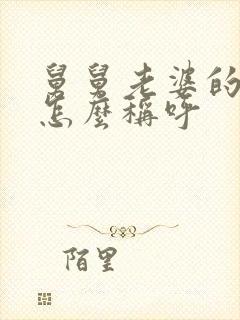 舅舅老婆的
怎麼稱呼
陌里